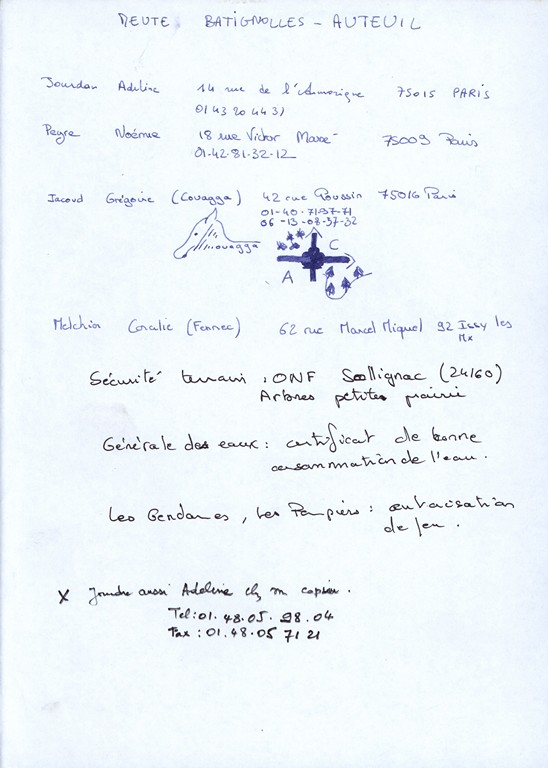 MEUTE BATIGNOLLES - AUTEUIL
Jourdan Adeline 14 rue de l'Armorique 75015 PARIS
01 43 20 44 31
Peyre Noémie 18 rue Victor Massé 75009 Paris
01-42-81-32-12
Jacoud Grégoire (Couagga) 42 rue Poussin 75016 Paris
01-40-71-37-71
06-13-08-37-32
couagga
C
A
Melchior Coralie (Fennec) 62 rue Marcel Miquel 92 Issy les
Mx
Sécurité terrain : ONF Sollignac (24/60)
Arbres petites prairie
Générale des eaux : certificat de bonne
consommation de l'eau.
Les Gendarmes, Les Pompiers : autorisation
de feu.
X Joindre aussi Adeline chz
Tel : 01.48.05.98.04
Fax : 01.48.05 71 21